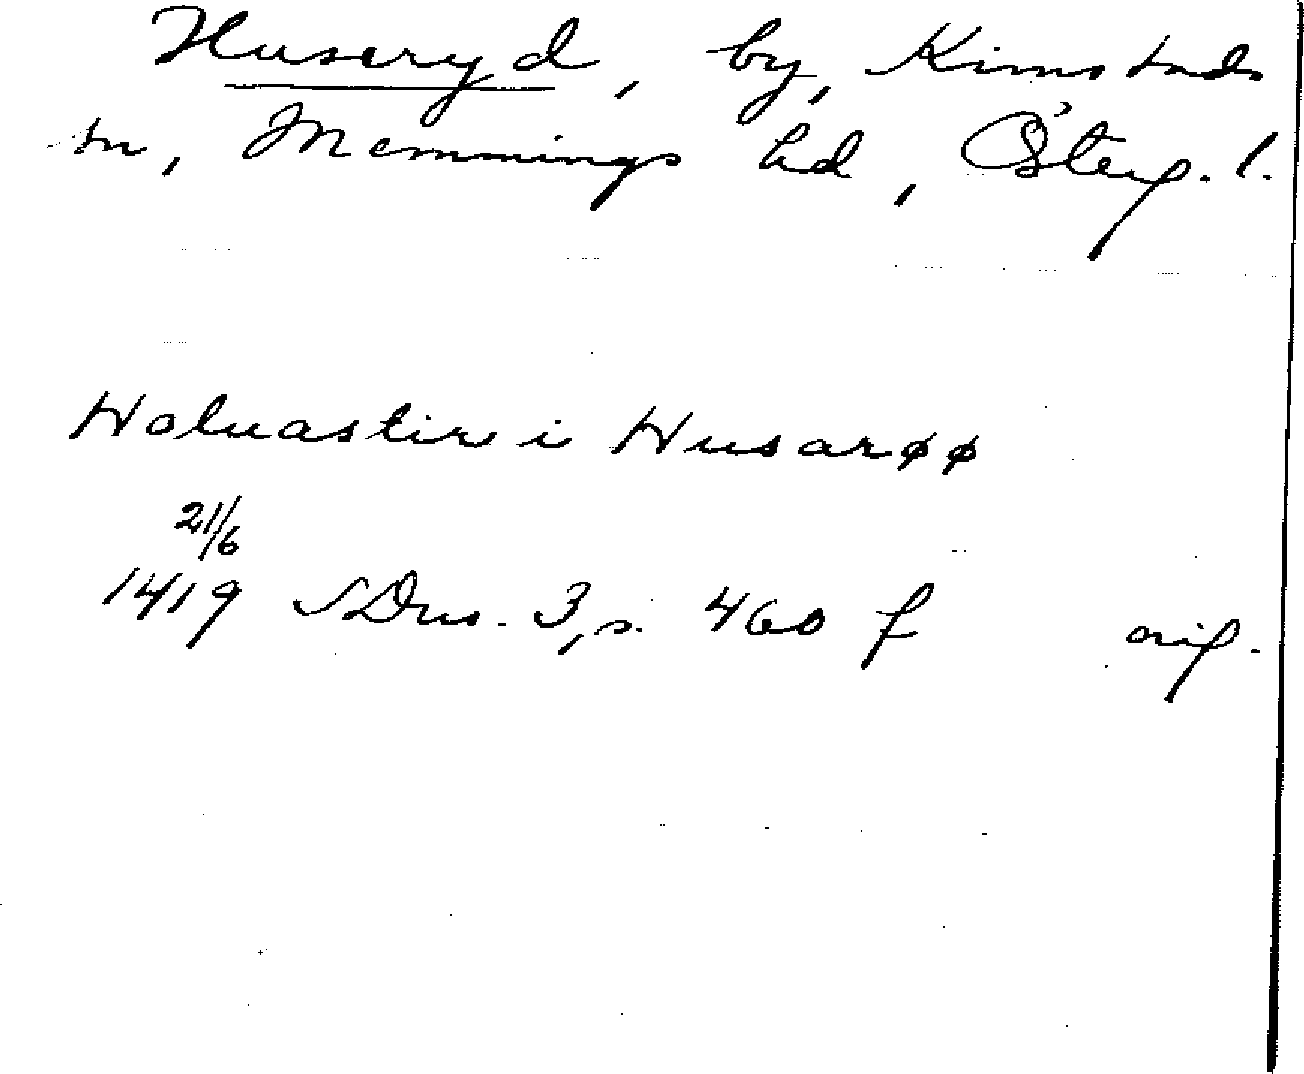 Huseryd, by, Kimstads
sn, Memmings hd, Österg. l.
Holuastir i Husarøø
21/6
1419 SDns. 3, s. 460 f orig.